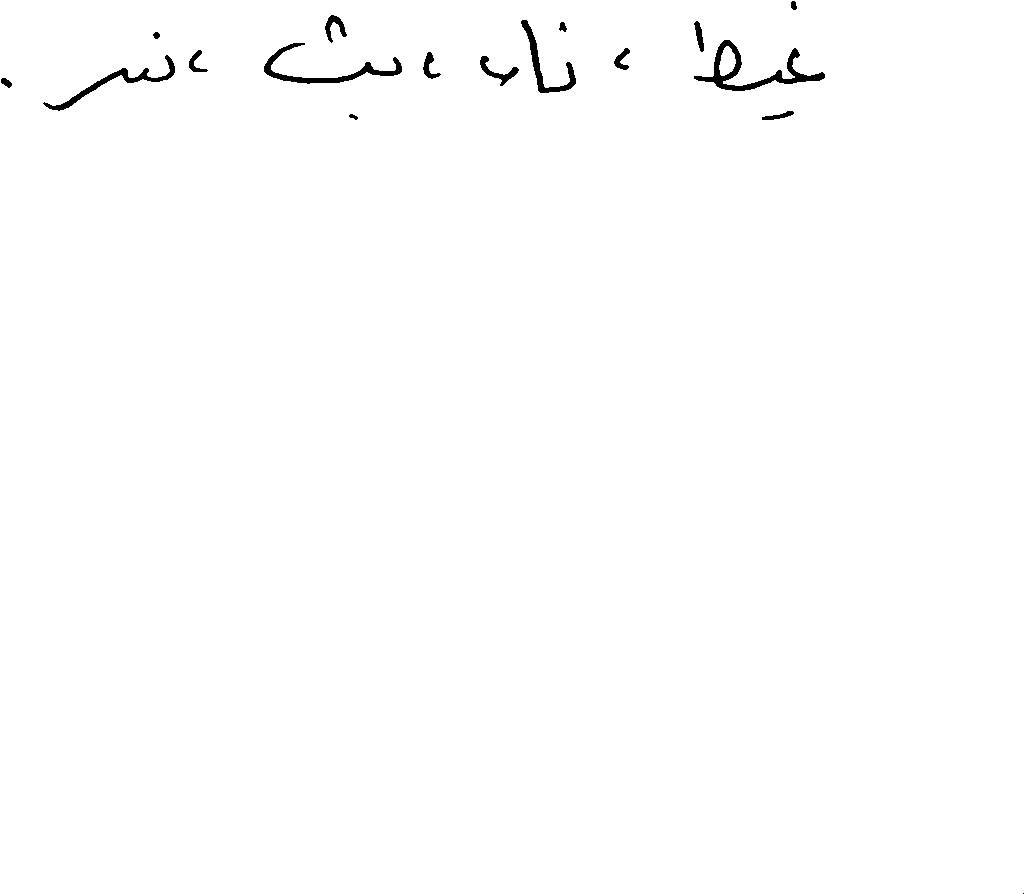 غيط ، ناب ، بث ، نسر .